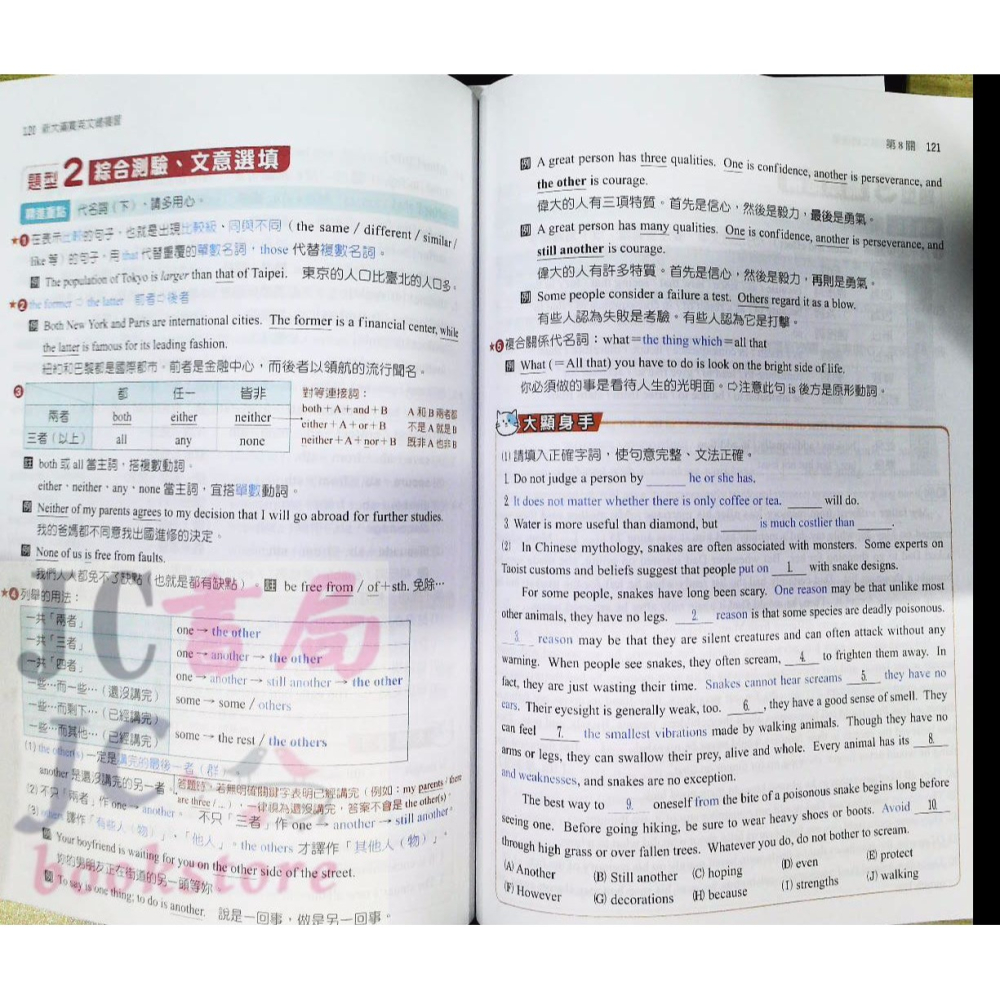 120 新大滿貫英文總複習
題型2 綜合測驗、文意選填
精進重點 代名詞(下),請多用心。
★❶在表示比較的句子,也就是出現比較級、同與不同(the same / different / similar /
like 等)的句子,用 that 代替重覆的單數名詞,those 代替複數名詞。
例 The population of Tokyo is larger than that of Taipei. 東京的人口比臺北的人口多。
★❷the former ⇨ the latter 前者⇨後者
例 Both New York and Paris are international cities. The former is a financial center, while
the latter is famous for its leading fashion.
紐約和巴黎都是國際都市。前者是金融中心,而後者以領航的流行聞名。
❸ 都 任一 皆非
兩者 both either neither
三者(以上) all any none
對等連接詞:
both+A+and+B A 和 B 兩者都
either+A+or+B 不是 A 就是 B
neither+A+nor+B 既非 A 也非 B
註 both 或 all 當主詞,搭複數動詞。
either、neither、any、none 當主詞,宜搭單數動詞。
例 Neither of my parents agrees to my decision that I will go abroad for further studies.
我的爸媽都不同意我出國進修的決定。
例 None of us is free from faults.
我們人人都免不了缺點(也就是都有缺點)。註 be free from / of+sth. 免除…
★❹列舉的用法:
一共「兩者」 one → the other
一共「三者」 one → another → the other
一共「四者」 one → another → still another → the other
一些…而一些…(還沒講完) some → some / others
一些…而剩下…(已經講完)
一些…而其他…(已經講完) some → the rest / the others
(1) the other(s) 一定是講完的最後一者(群)。
another 是還沒講完的另一者。若題目若無明確關鍵字表明已經講完(例如:my parents / there
are three / ...),一律視為還沒講完,答案不會是 the other(s)。
(2) 不只「兩者」作 one → another。 不只「三者」作 one → another → still another
(3) others 譯作「有些人(物)」、「他人」。the others 才譯作「其他人(物)」。
例 Your boyfriend is waiting for you on the other side of the street.
妳的男朋友正在街道的另一頭等妳
例 To say is one thing; to do is another. 說是一回事,做是另一回事。
JC 書局
JC
bookstore
第 8 關 121
例 A great person has three qualities. One is confidence, another is perseverance, and
the other is courage.
偉大的人有三項特質。首先是信心,然後是毅力,最後是勇氣。
例 A great person has many qualities. One is confidence, another is perseverance, and
still another is courage.
偉大的人有許多特質。首先是信心,然後是毅力,再則是勇氣。
例 Some people consider a failure a test. Others regard it as a blow.
有些人認為失敗是考驗。有些人認為它是打擊。
★❺複合關係代名詞:what=the thing which=all that
例 What (=All that) you have to do is look on the bright side of life.
你必須做的事是看待人生的光明面。⇨注意此句 is 後方是原形動詞。
大顯身手
(1) 請填入正確字詞,使句意完整、文法正確。
1. Do not judge a person by ______ he or she has.
2. It does not matter whether there is only coffee or tea. ______ will do.
3. Water is more useful than diamond, but ______ is much costlier than ______.
(2) In Chinese mythology, snakes are often associated with monsters. Some experts on
Taoist customs and beliefs suggest that people put on 1. with snake designs.
For some people, snakes have long been scary. One reason may be that unlike most
other animals, they have no legs. 2. reason is that some species are deadly poisonous.
3. reason may be that they are silent creatures and can often attack without any
warning. When people see snakes, they often scream, 4. to frighten them away. In
fact, they are just wasting their time. Snakes cannot hear screams 5. they have no
ears. Their eyesight is generally weak, too. 6. , they have a good sense of smell. They
can feel 7. the smallest vibrations made by walking animals. Though they have no
arms or legs, they can swallow their prey, alive and whole. Every animal has its 8.
and weaknesses, and snakes are no exception.
The best way to 9. oneself from the bite of a poisonous snake begins long before
seeing one. Before going hiking, be sure to wear heavy shoes or boots. Avoid 10.
through high grass or over fallen trees. Whatever you do, do not bother to scream.
(A) Another (B) Still another (C) hoping (D) even (E) protect
(F) However (G) decorations (H) because (I) strengths (J) walking